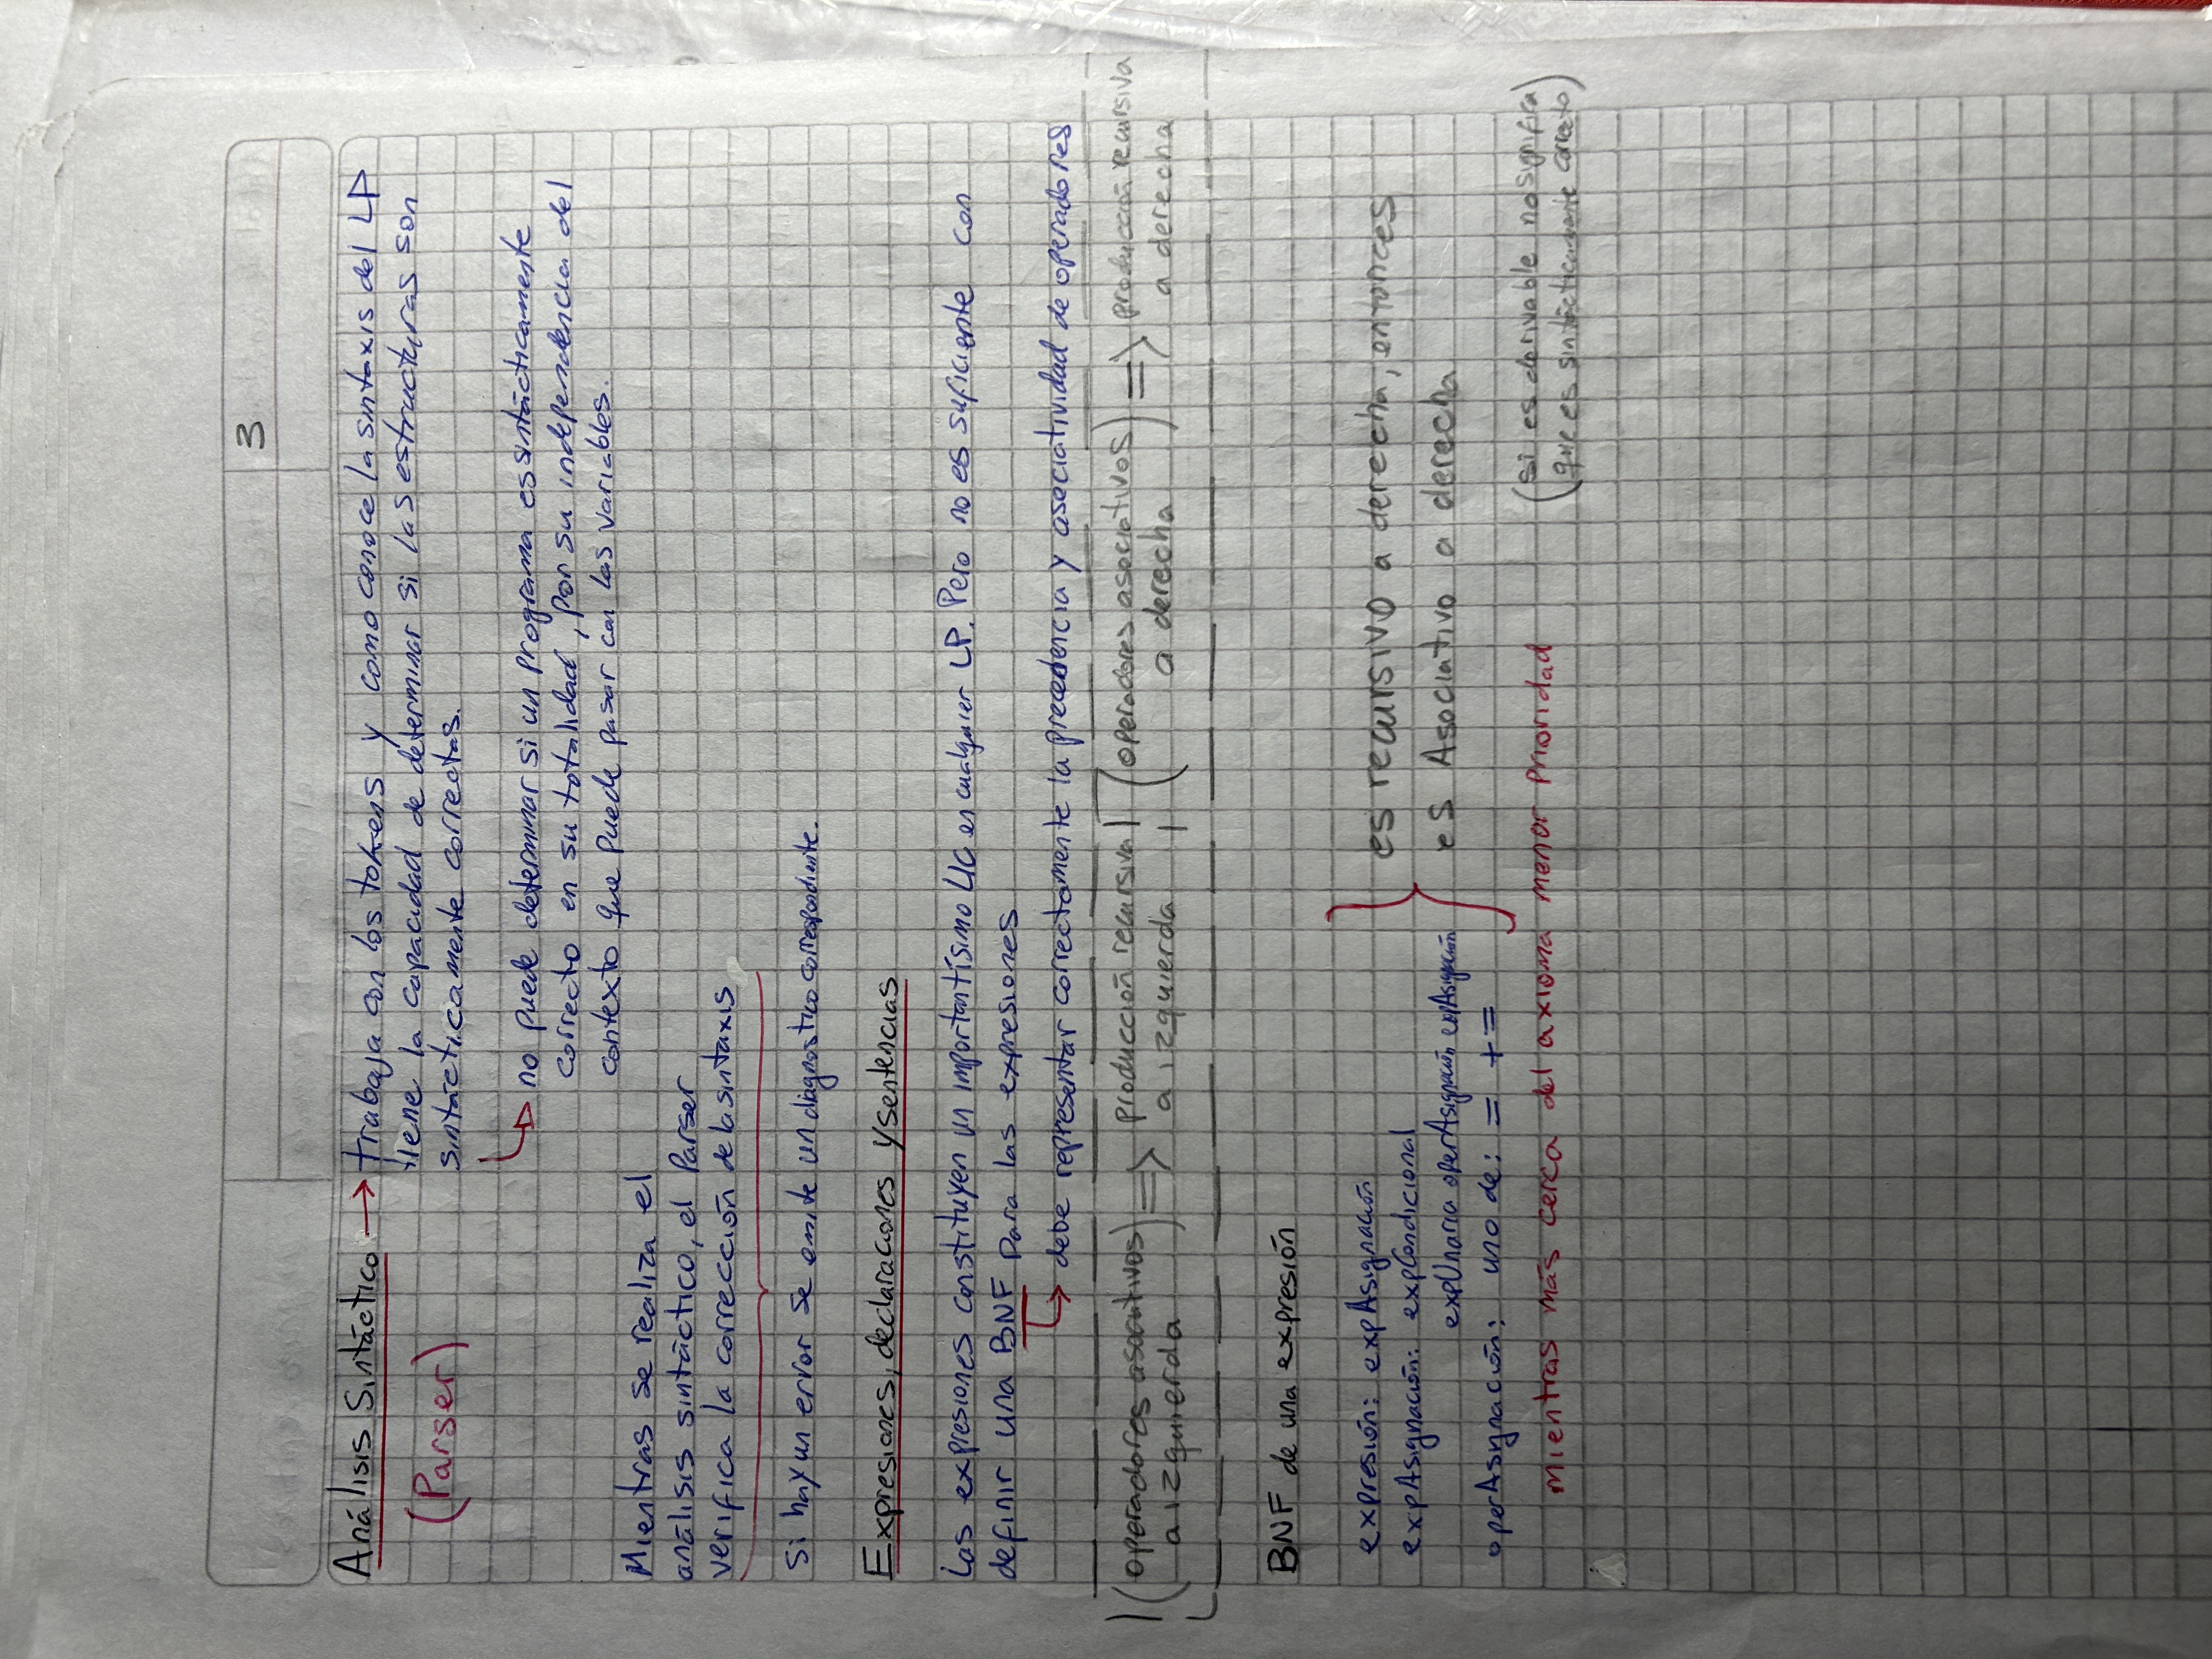 3
Análisis Sintáctico → trabaja con los tokens y como conoce la sintaxis del LP
(Parser)
tiene la capacidad de determinar si las estructuras son
sintácticamente correctas.
no puede determinar si un programa es sintácticamente
correcto en su totalidad, por su independencia del
contexto que puede pasar con las variables.
Mientras se realiza el
análisis sintáctico, el Parser
verifica la corrección de la sintaxis
Si hay un error se emite un diagnostico correspondiente.
Expresiones, declaraciones y sentencias
Las expresiones constituyen un importantísimo LIC en cualquier LP. Pero no es suficiente con
definir una BNF para las expresiones
debe representar correctamente la precedencia y asociatividad de operadores
(operadores asociativos a izquierda) => producción recursiva a izquierda
(operadores asociativos a derecha) => producción recursiva a derecha
BNF de una expresión
expresión: expAsignación
expAsignación: expCondicional
expUnaria operAsignación expAsignación
operAsignación: uno de: = +=
es recursivo a derecha, entonces
es Asociativo a derecha
mientras más cerca del axioma menor prioridad
(si es derivable no significa
que es sintácticamente correcto)